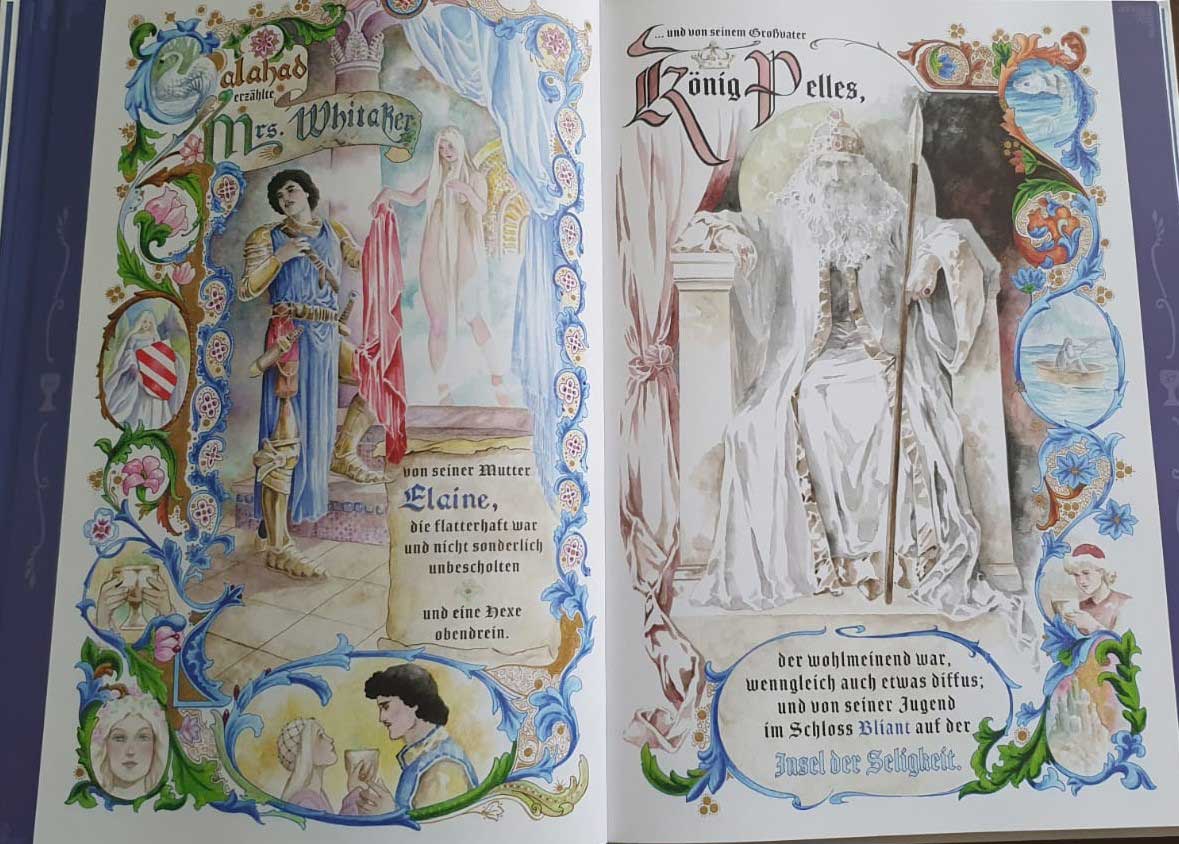 Galahad
erzählte
Mrs. Whitaker
von seiner Mutter
Elaine,
die flatterhaft war
und nicht sonderlich
unbescholten
und eine Hexe
obendrein.
... und von seinem Großvater
König Pelles,
der wohlmeinend war,
wenngleich auch etwas diffus;
und von seiner Jugend
im Schloss Bliant auf der
Insel der Seligkeit.